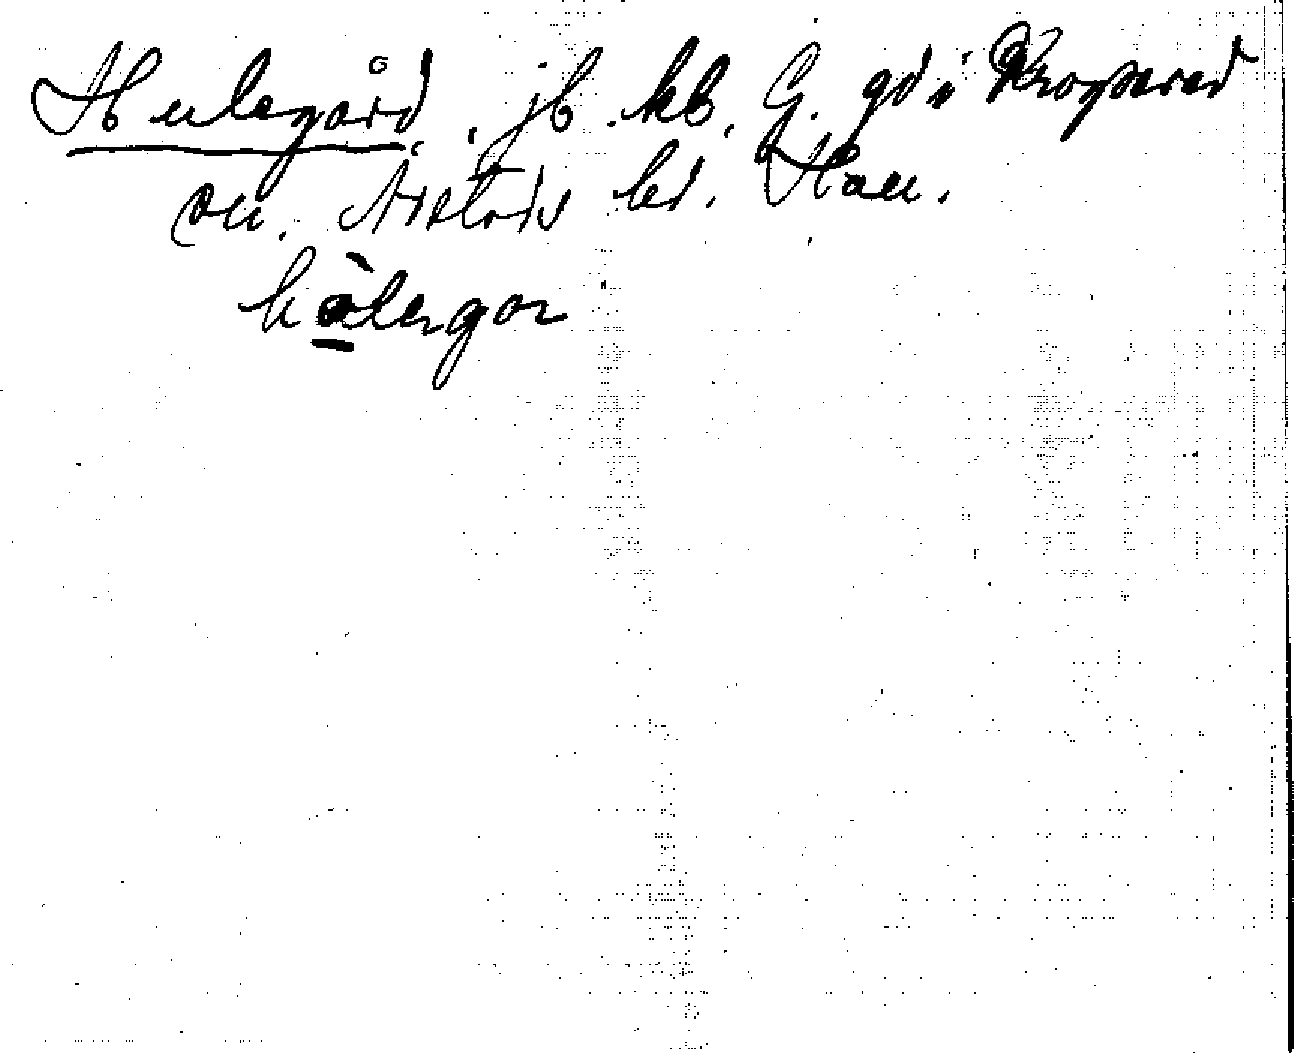 Hulegård, jb. kb. G. gd i Kroppered
sn. Årstads hd. Hall.
hålægor